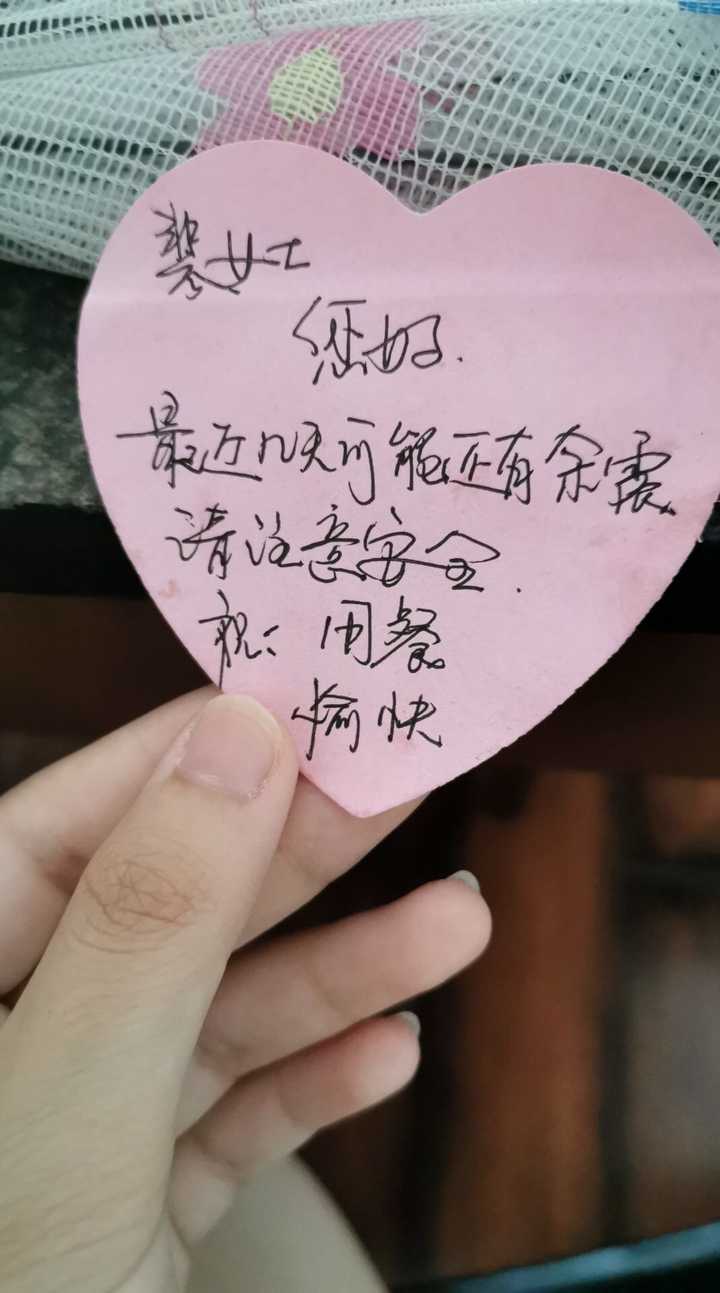 女士
您好.
最近几天可能还有余震
请注意安全.
祝: 用餐
愉快